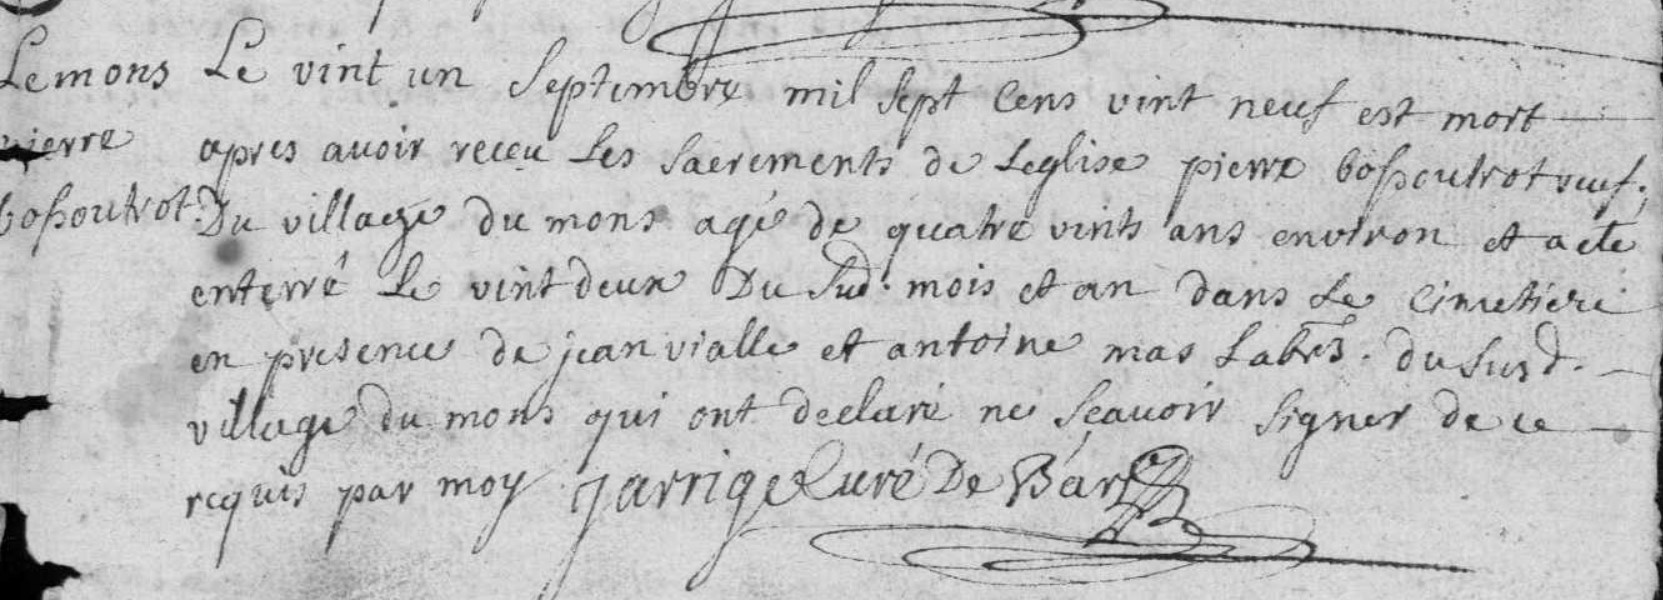 Lemons
pierre
boßoutrot.
Le vint un Septembre mil sept Cens vint neuf est mort
apres avoir receu Les sacrements de Leglise pierre boßoutrot veuf.
Du village du mons agé de quatre vints ans environ et a eté
enterré Le vint deux Du Sud. mois et an dans Le Cimetiere
en presence de jean vialle et antoine mas Labrs. du Susd.
village du mons qui ont declaré ne Scavoir Signer de ce
requis par moy jarrige Curé De Bar